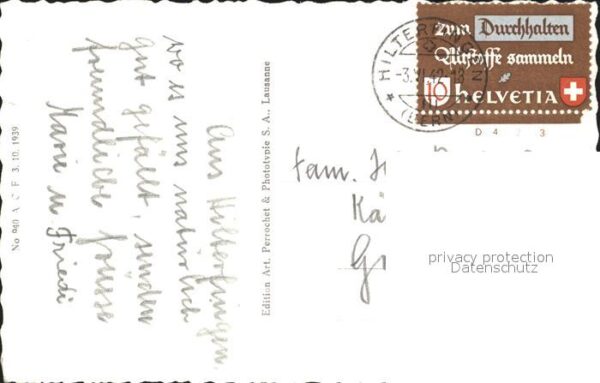 Aus Hilterfingen
wo es uns natürlich
gut gefällt, senden
freundliche Grüsse
Marie u. Friedi
No 940 A C F 3.10.1939
Edition Art. Perrochet & Phototypie S. A., Lausanne
HILTERFINGEN
(BERN)
zum Durchhalten
Altstoffe sammeln
10 HELVETIA
D 4 2 3
Fam. H
Kä
Gr
privacy protection
Datenschutz